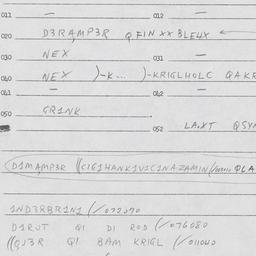 011 — 012 —
020 D3RAMP3R QFINXXBLEUX
030 NEX 031 —
040 NEX )-K... )-KRIGLHOLC QAKR
041 — 042 —
050 GRINK
052 LA.XT QSYN
D1MAMP3R ((CIG1HANK1V1C1NAZAMIN/ QLA
1ND3RBR1N1 (/072070
D1RUT Q1 D1 ROD (/076080
((QU3R Q1 BAM KRIGL (/011040